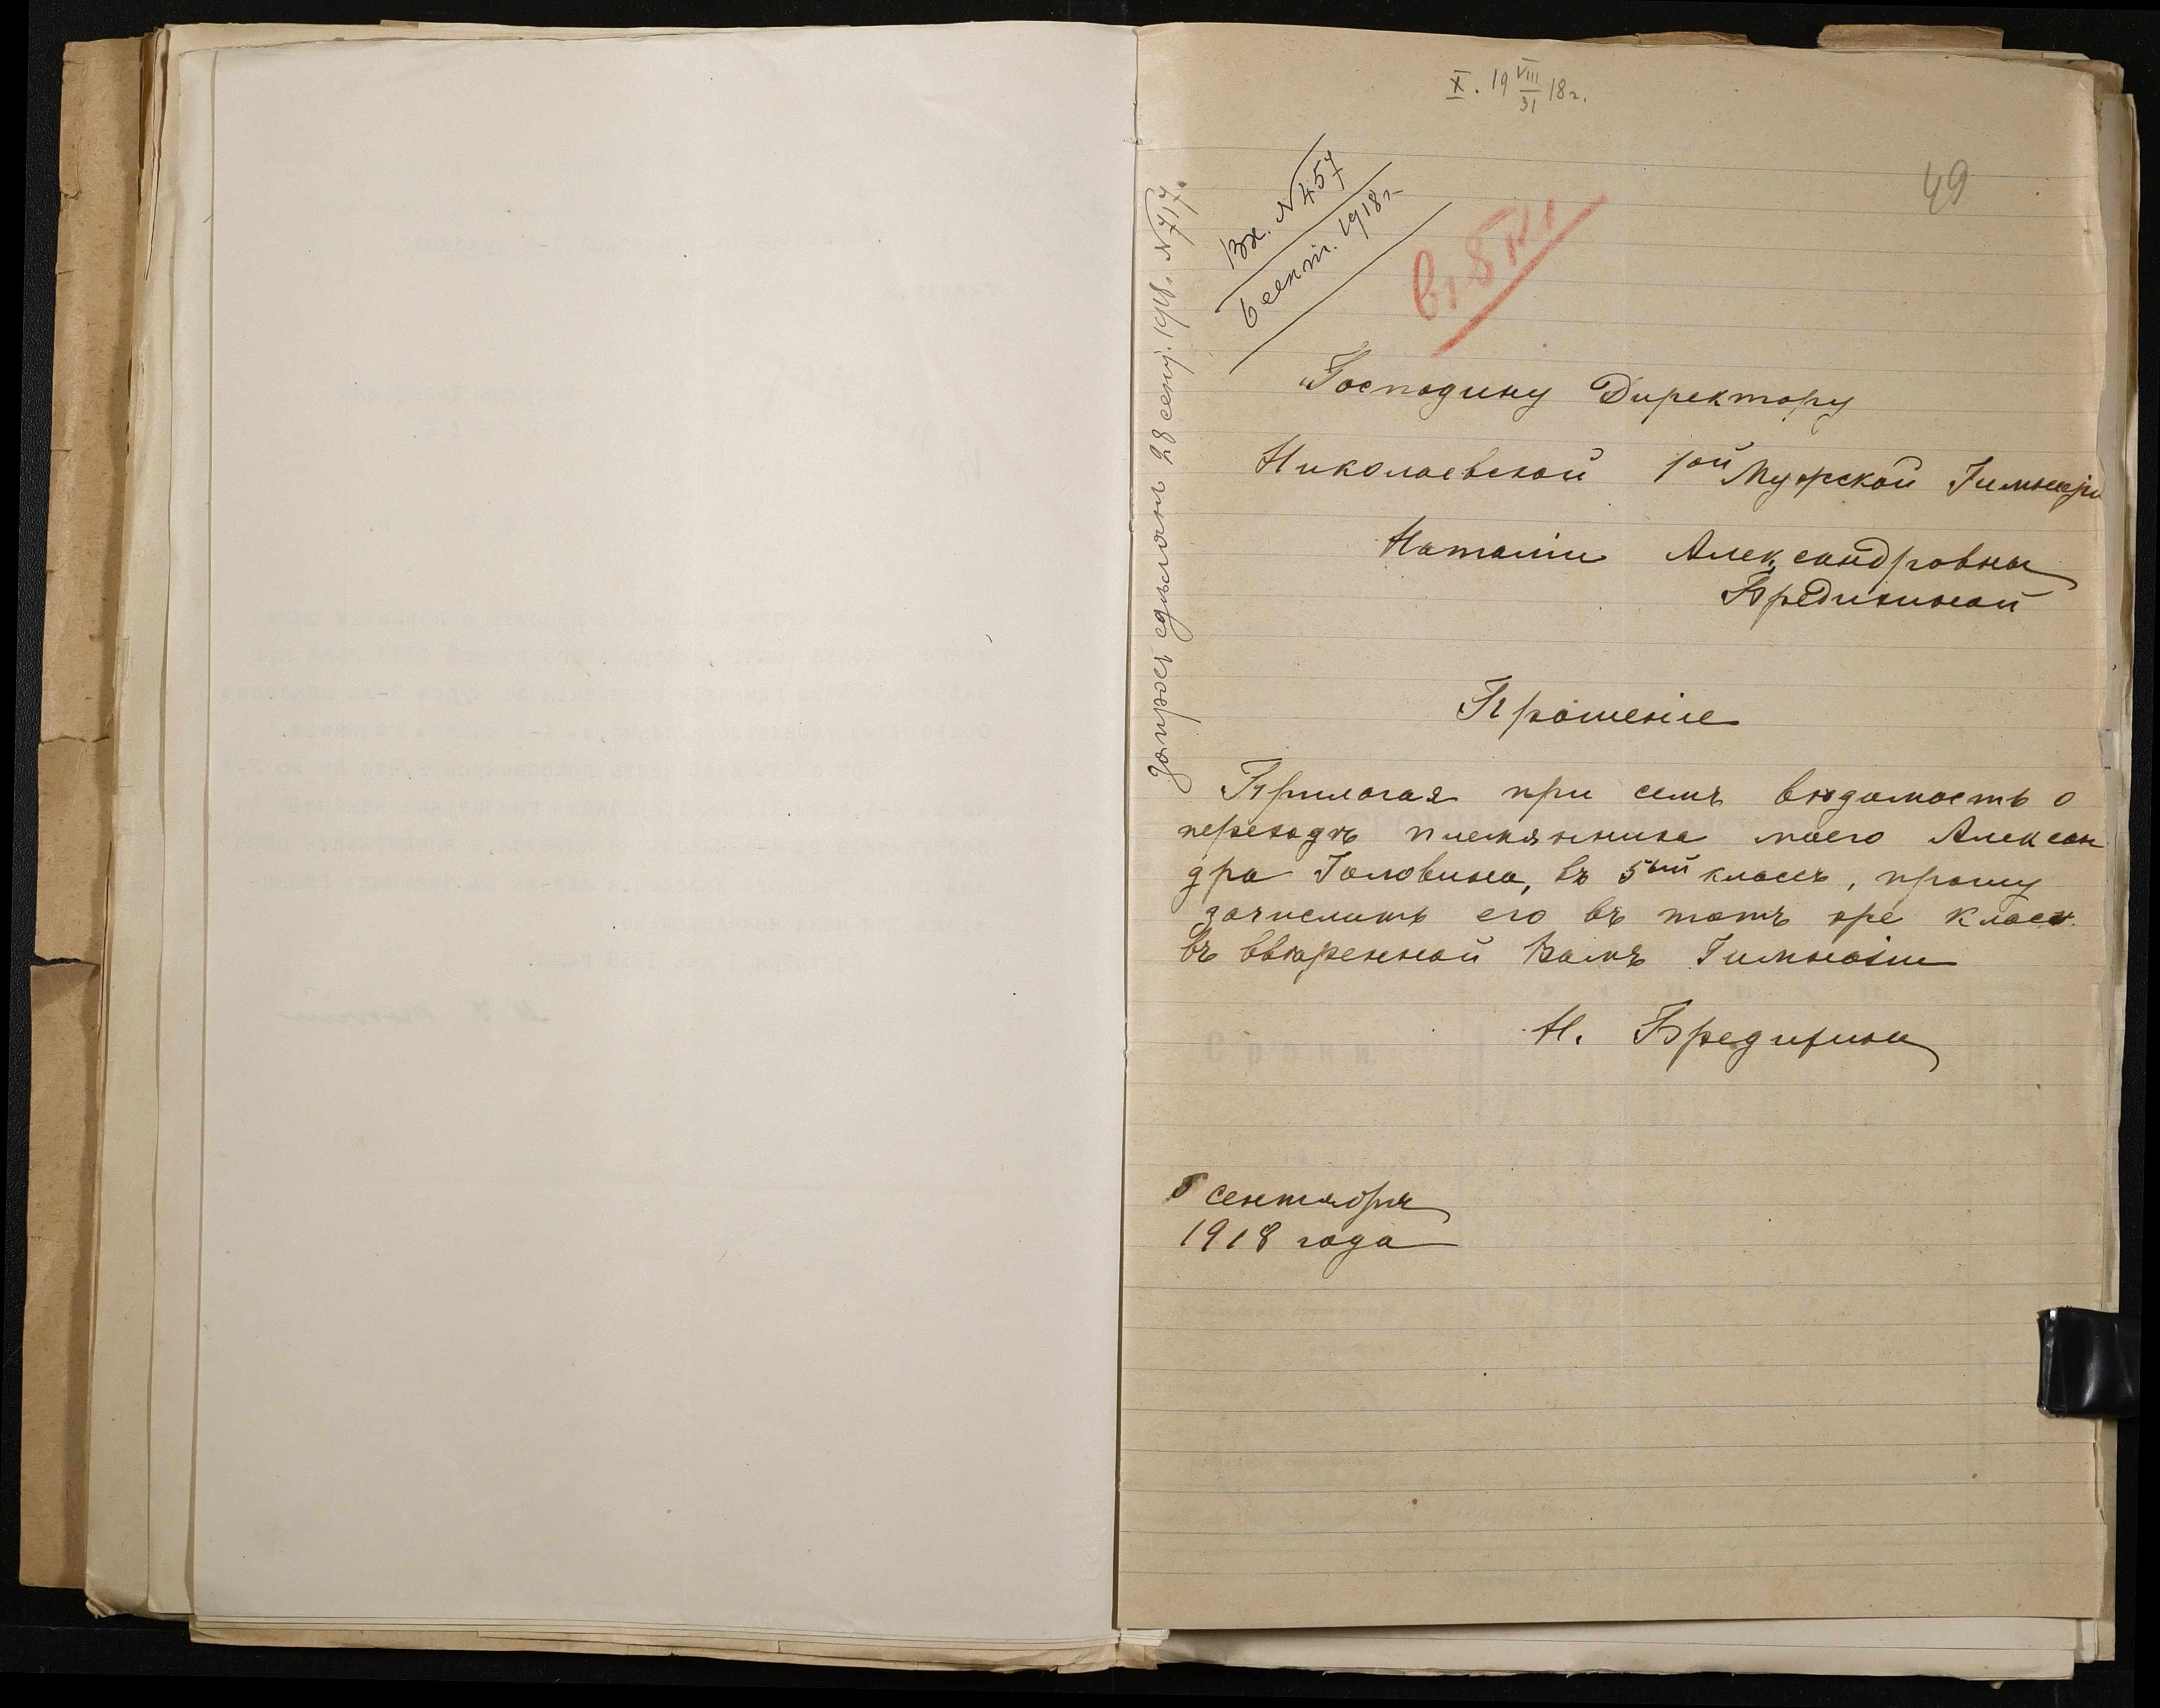 X. 19 VIII/31 18 г.
49
Вх. № 457
6 сент. 1918 г.
въ 5 кл.
запросъ сдѣланъ 28 сент. 1918 г. № 717.
Господину Директору
Николаевской 1ой Мужской Гимназіи
Наталіи Александровны
Бредихиной
Прошеніе
Прилагая при семъ вѣдомость о
переходѣ племянника моего Алексан
дра Головина, въ 5ый классъ, прошу
зачислить его въ тотъ же классъ
въ ввѣренной Вамъ Гимназіи
Н. Бредихина
5 сентября
1918 года